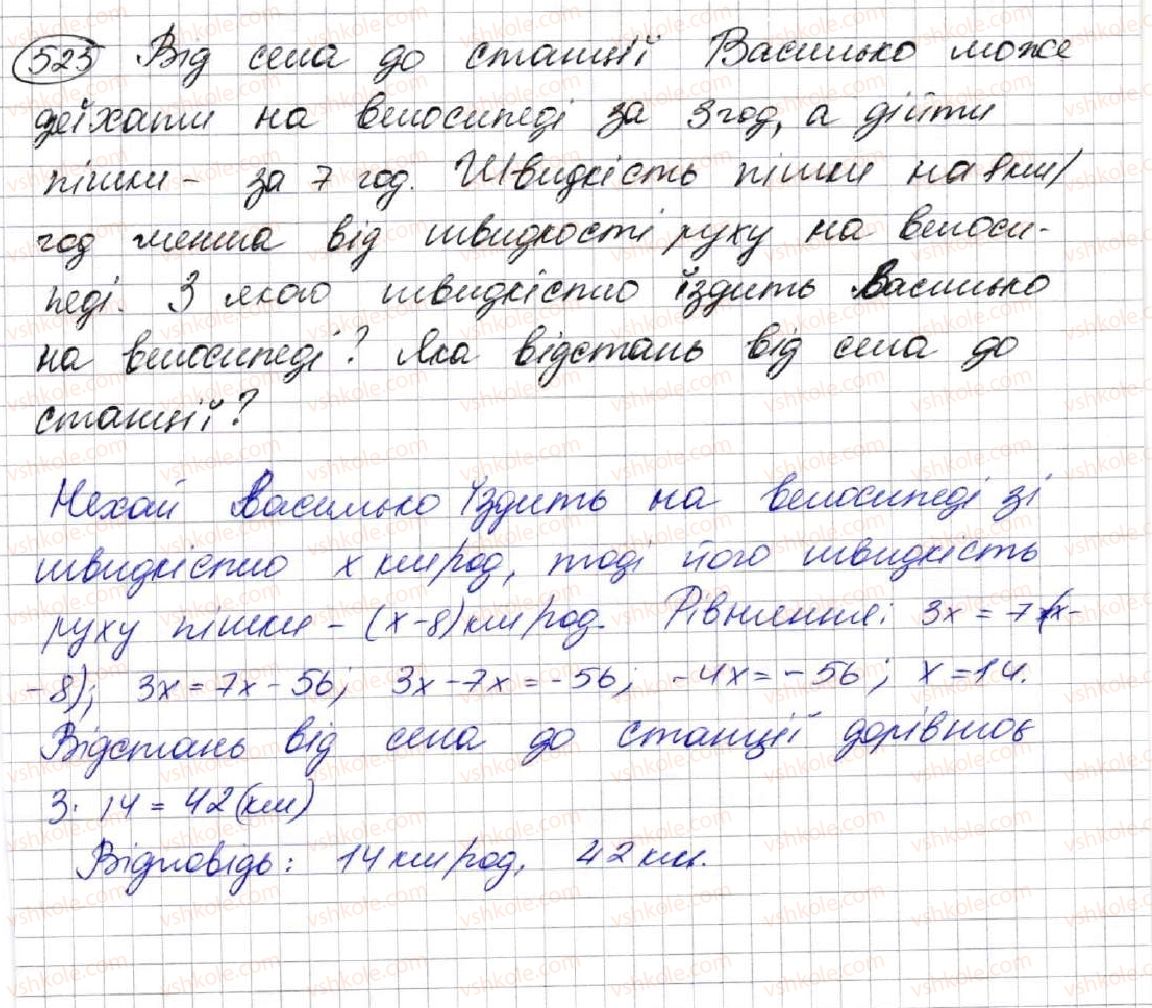 525 Від села до станції Василько може
доїхати на велосипеді за 3 год, а дійти
пішки - за 7 год. Швидкість пішки на 8 км/
год менша від швидкості руху на велоси-
педі. З якою швидкістю їздить Василько
на велосипеді? Яка відстань від села до
станції?
Нехай Василько їздить на велосипеді зі
швидкістю x км/год, тоді його швидкість
руху пішки - (x-8) км/год. Рівняння: 3x = 7(x-
-8); 3x = 7x - 56; 3x - 7x = -56; -4x = -56; x = 14.
Відстань від села до станції дорівнює
3 · 14 = 42 (км)
Відповідь: 14 км/год, 42 км.